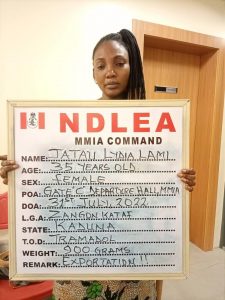 NDLEA
MMIA COMMAND
NAME: TATAU LYDIA LAMI
AGE: 35 YEARS OLD
SEX: FEMALE
POA: GATE 'C' DEPARTURE HALL, MMIA
DOA: 31ST JULY, 2022
L.G.A: ZANGON KATAF
STATE: KADUNA
T.O.D: TRAMADOL
WEIGHT: 900 GRAMS
REMARK: EXPORTATION!!